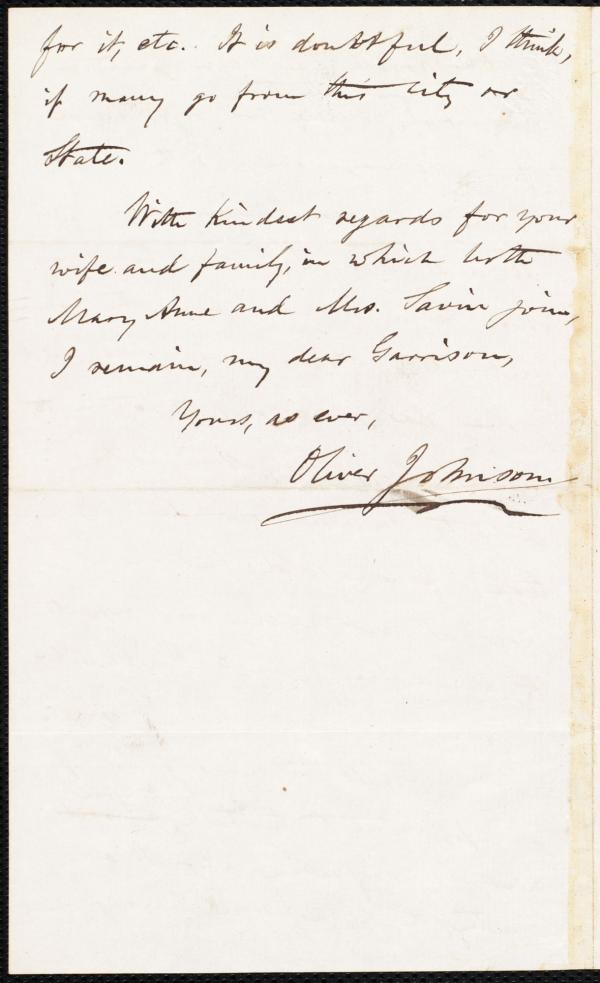 for it, etc. It is doubtful, I think,
if many go from this City or
State.
With kindest regards for your
wife and family, in which both
Mary Anne and Mrs. Savin join,
I remain, my dear Garrison,
Yours, as ever,
Oliver Johnson